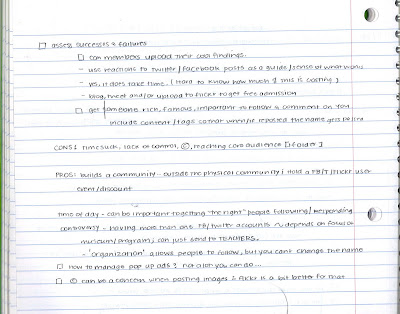 □ assess successes & failures
□ can members upload their cool findings.
- use reactions to twitter/facebook posts as a guide/sense of what works
- yes, it does take time. (Hard to know how much $ this is costing)
- blog, tweet and/or upload to flickr to get free admission
□ get someone rich, famous, important to follow & comment on you
include content/tags so that when/if reposted the name gets
CONS: time suck, lack of control, ©, reaching core audience [older]
PROS: builds a community - outside the physical community; hold a FB/T/Flickr user
event/discount
time of day - can be important to getting "the right" people following/responding
controversy - having more than one FB/twitter accounts depends on focus of
museum/program; can just send to TEACHERS.
- 'organization' allows people to follow, but you can't change the name
□ how to manage pop up ads? not a lot you can do...
□ © can be a concern when posting images & flickr is a bit better for that